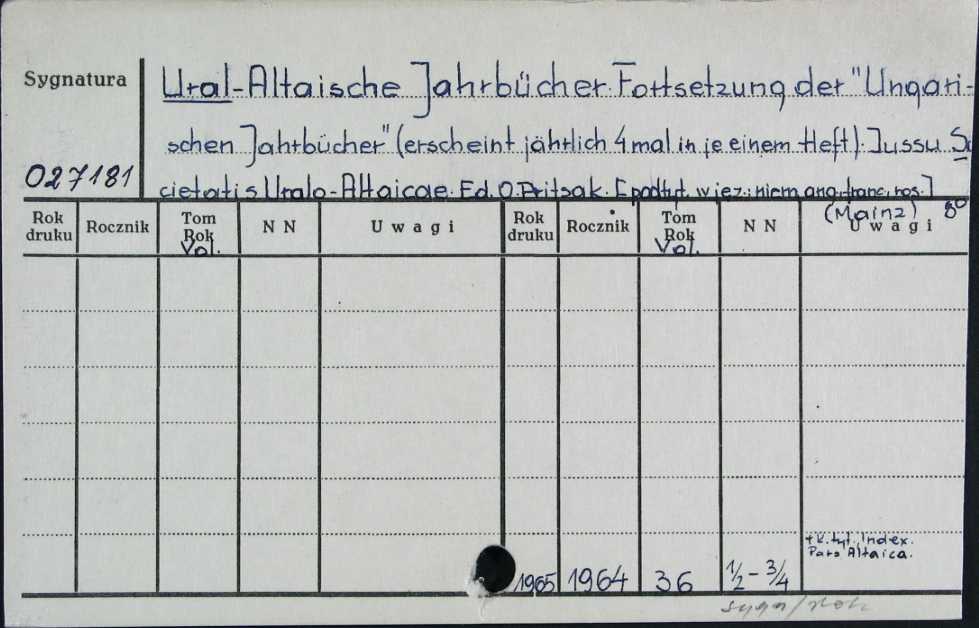 Sygnatura
Ural-Altaische Jahrbücher. Fortsetzung der "Ungari-
schen Jahrbücher" (erscheint jährlich 4 mal in je einem Heft). Jussu So
027181
cietatis Uralo-Altaicae. Ed. O. Pritsak. [podtyt. w jęz.: niem. ang. franc. ros.]
(Mainz) 8°
Rok druku Rocznik Tom Rok Vol. N N Uwagi Rok druku Rocznik Tom Rok Vol. N N Uwagi
+ k. tyt. Index.
Pars Altaica.
1965 1964 36 1/2 - 3/4